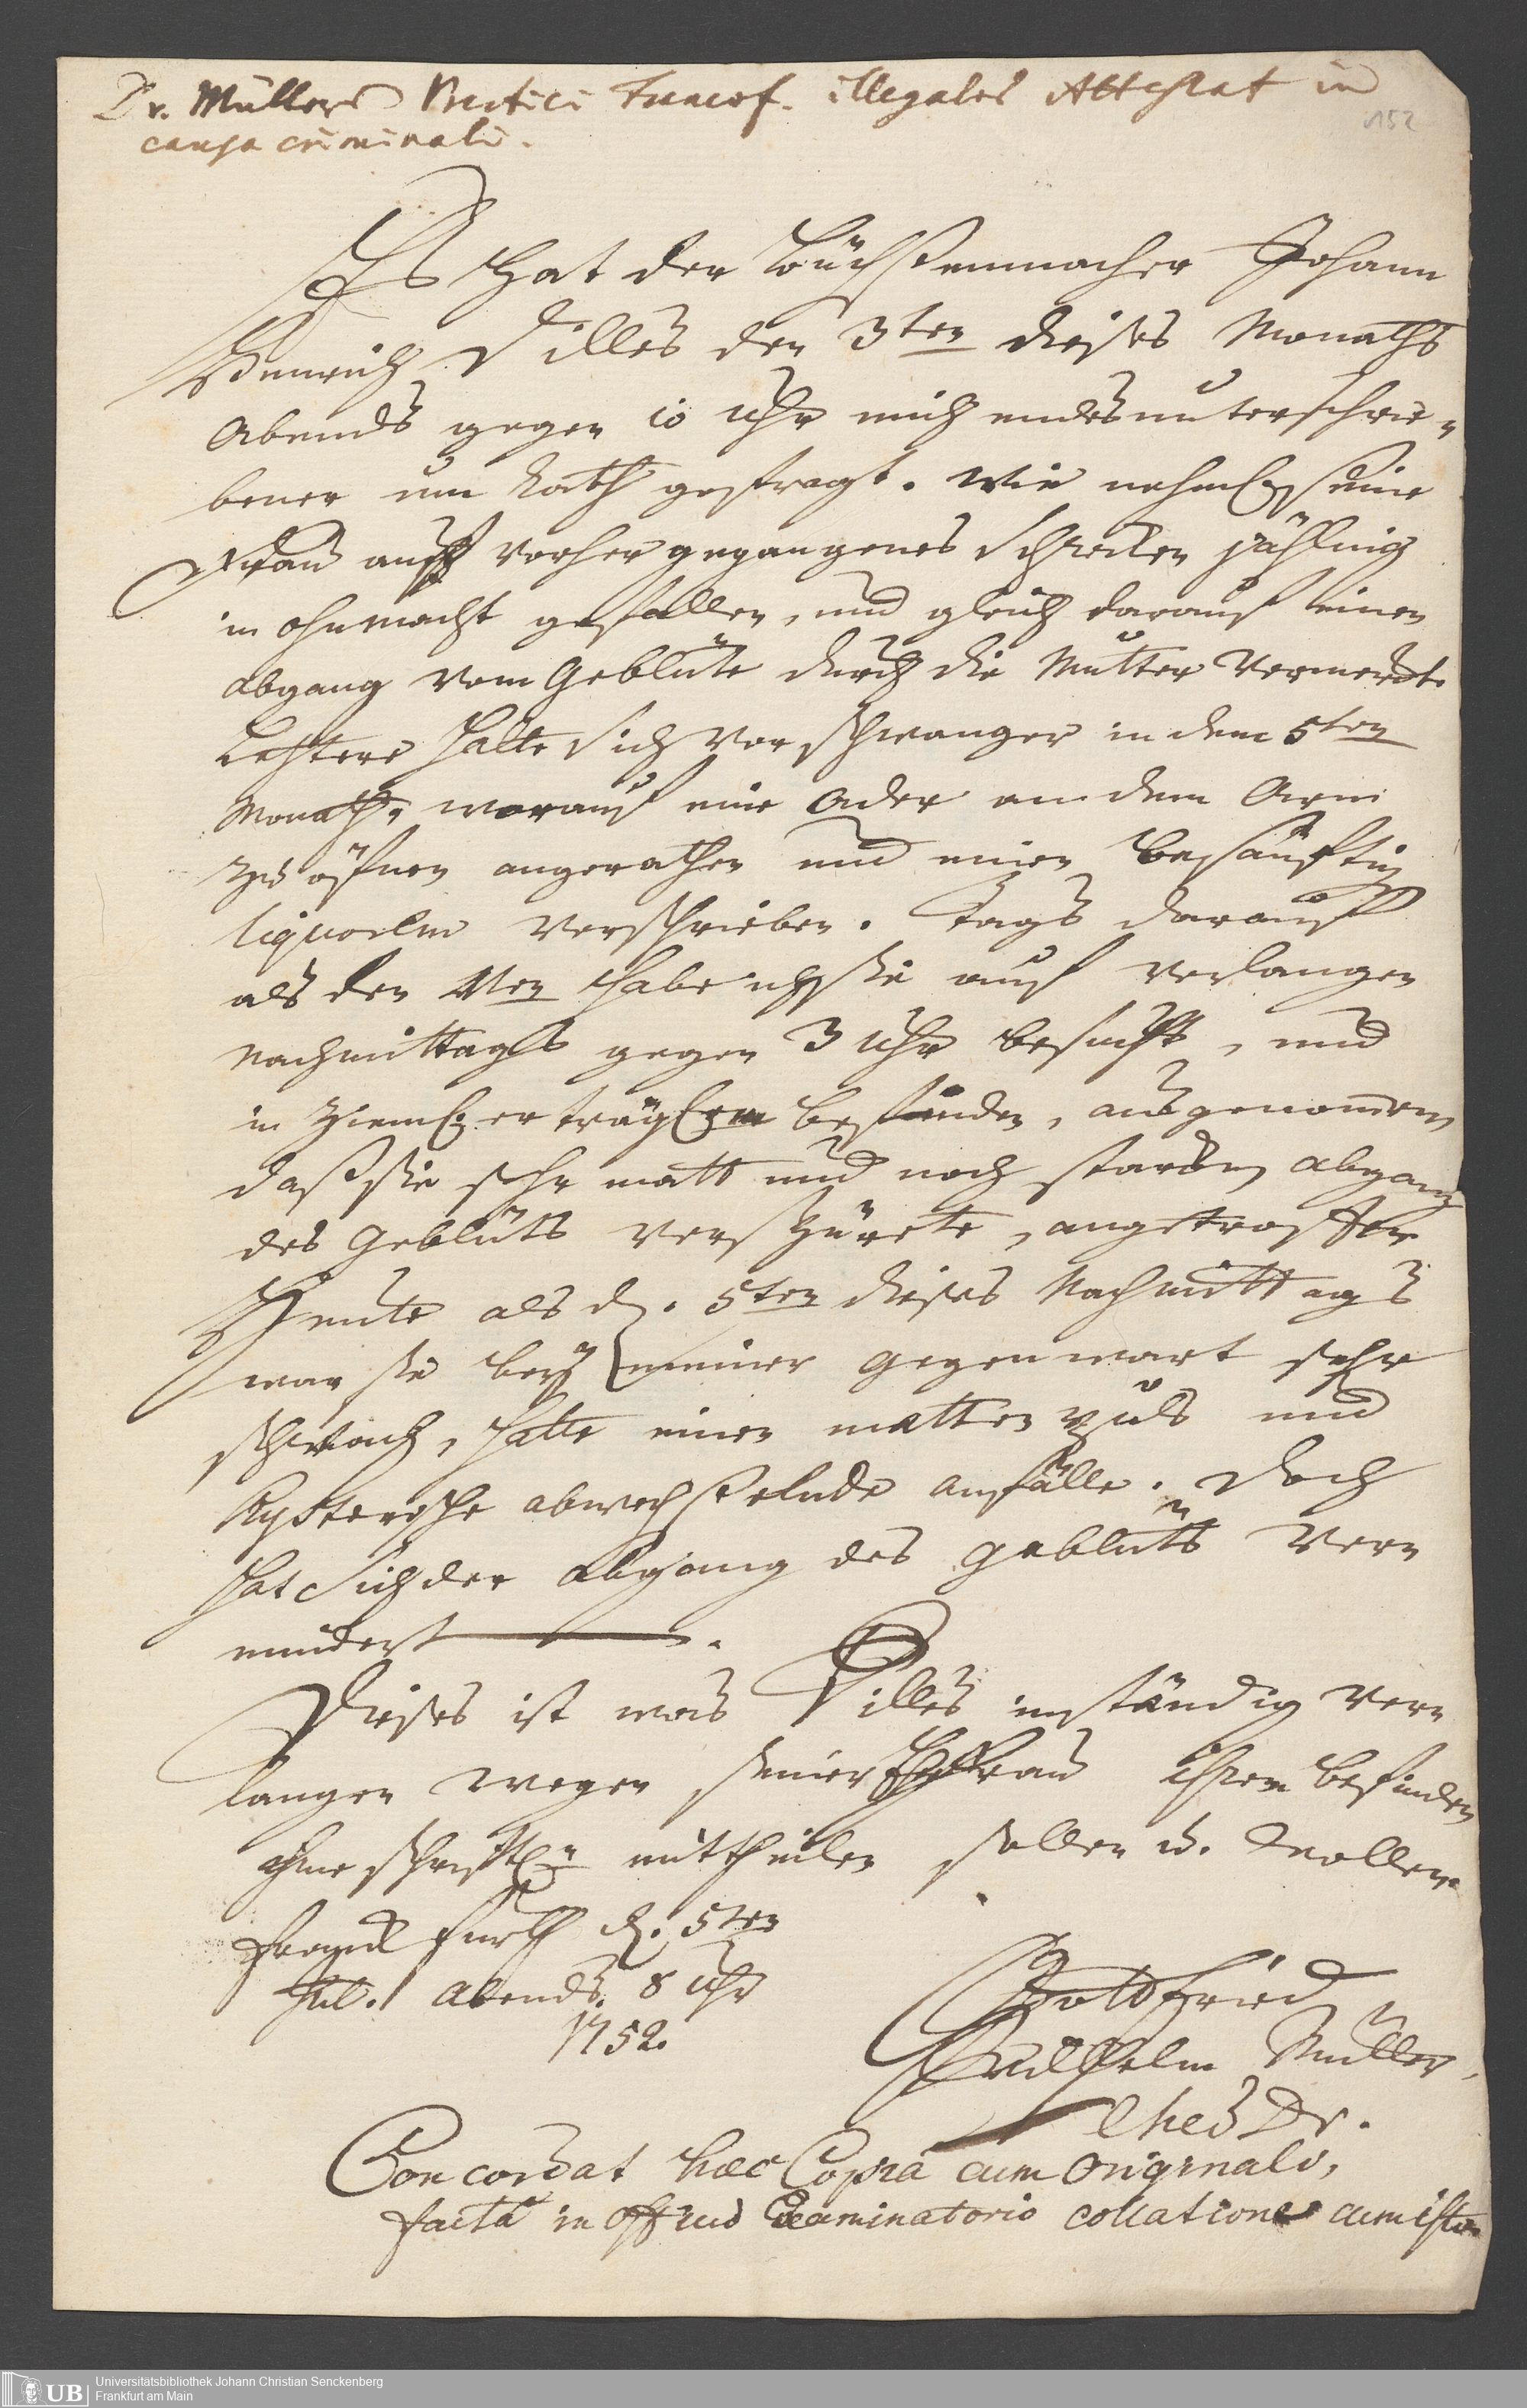 Dr. Müllers Practici Francof. illegales Attestat in
causa criminali.
152
Es hat der Büchsenmacher Johann
Henrich Dilles den 3ten dieses Monaths
Abends gegen 10 Uhr mich endes unterschrie-
bener um Rath gefragt. Wie nehml. seine
Frau auff vorher gegangenes Schrecken jähling
in ohnmacht gefallen, und gleich darauf einen
abgang vom Geblüte durch die Mutter vermerckt.
Letztere halte sich vor schwanger in dem 5ten
Monath, worauf eine Ader an dem Arm
zu öfnen angerathen und einen besänftig
liquorem verschrieben. Tags darauf
als den 4ten habe ich sie auf verlangen
Nachmittags gegen 3 Uhr besucht, und
in zieml. erträgl. befinden, ausgenommen
daß sie sehr matt und noch starcken abgang
des Geblüts verspürete, angetroffen
Heute als d. 5ten dieses Nachmittags
war sie bey meiner Gegenwart sehr
schwach, hatte einen matten puls und
hysterische abwechselnde anfälle. Doch
hat sich der abgang des geblüts ver-
mindert.
Dieses ist was Dilles inständig ver-
langen wegen seiner Ehefrau ihrem befinden
schriftl. mittheilen sollen u. wollen.
Franckfurth d. 5ten
Jul. abends. 8 Uhr
1752.
Gottfried
Wilhelm Müller,
Med Dr.
Concordat haec Copia cum Originali,
facta in Officio Examinatorio collatione cum isto
UB
Universitätsbibliothek Johann Christian Senckenberg
Frankfurt am Main